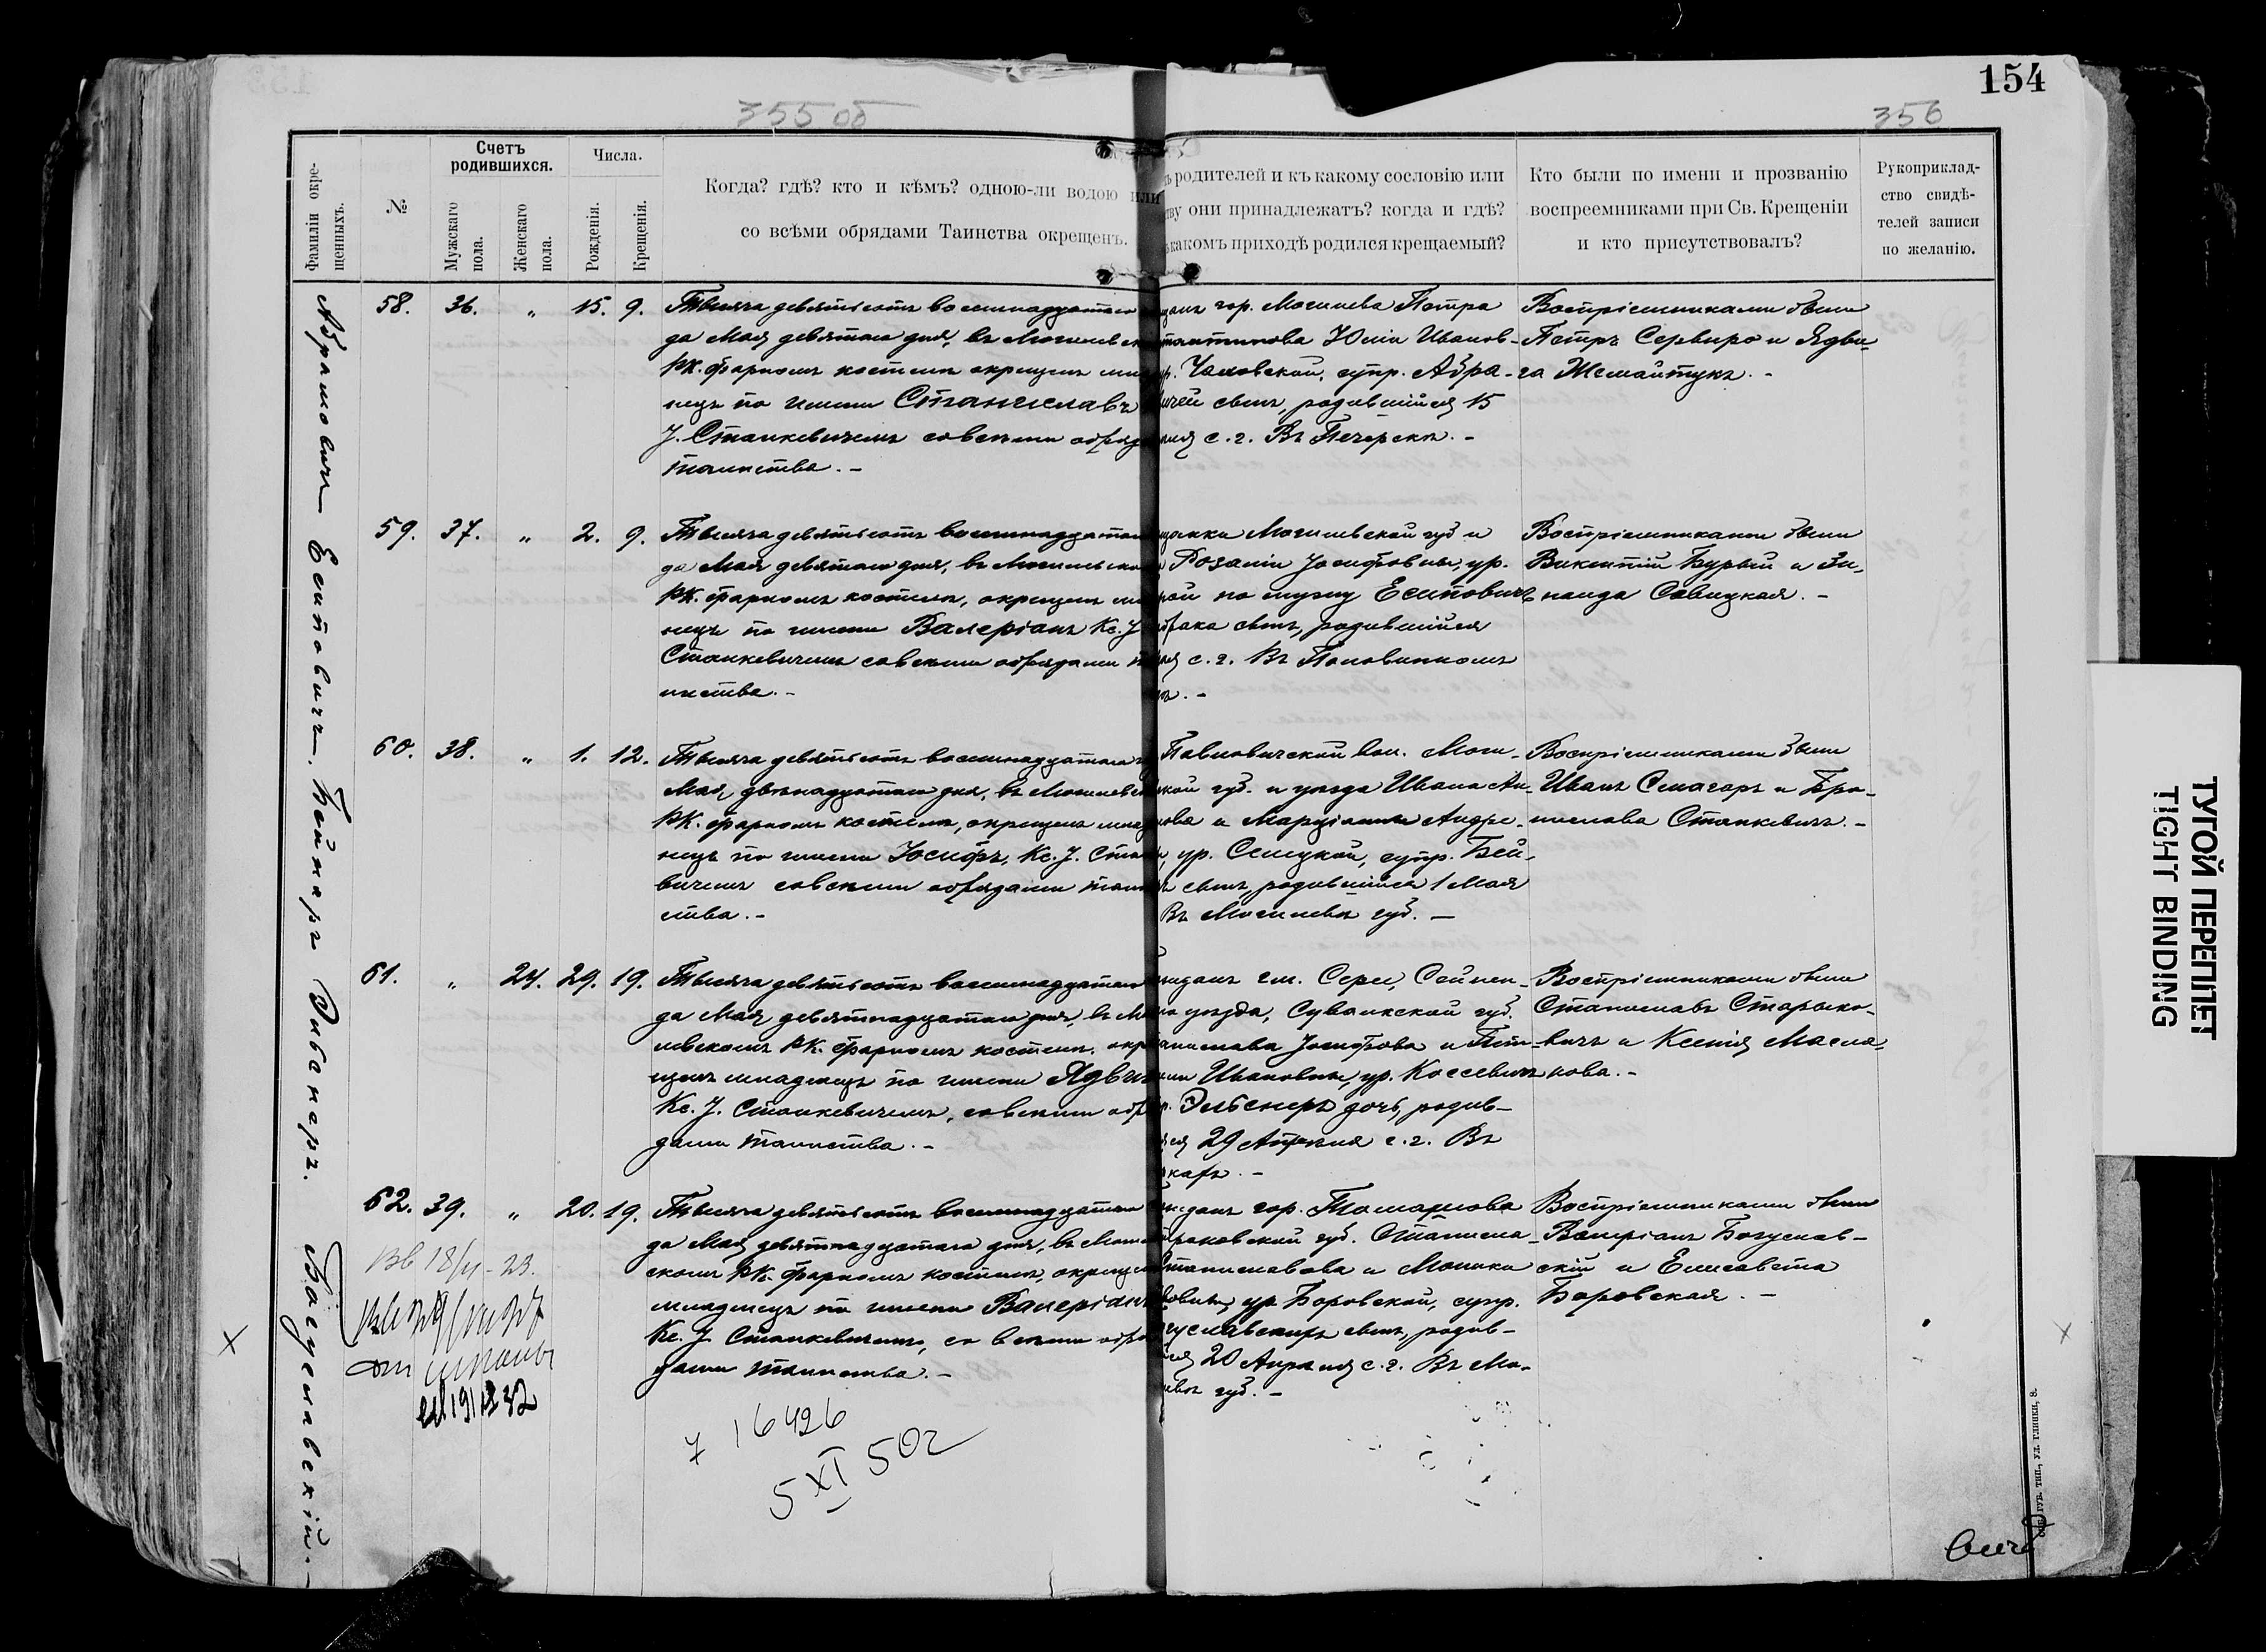 154
355 об
356
Фамиліи окре-
щенныхъ.
№
Счетъ
родившихся.
Мужскаго
пола.
Женскаго
пола.
Числа.
Рожденія.
Крещенія.
Когда? гдѣ? кто и кѣмъ? одною-ли водою или
со всѣми обрядами Таинства окрещенъ.
родителей и къ какому сословію или
они принадлежатъ? когда и гдѣ?
какомъ приходѣ родился крещаемый?
Кто были по имени и прозванію
воспреемниками при Св. Крещеніи
и кто присутствовалъ?
Рукоприклад-
ство свидѣ-
телей записи
по желанію.
Абрамовичъ
58. 36. " 15. 9.
Тысяча девятьсотъ восемнадцатаго
да Мая девятаго дня, въ Могилевск
РК. фарномъ костелѣ окрещенъ мла
нецъ по имени Станиславъ
J. Станкевичемъ со всѣми обряд
таинства. –
гор. Могилева Петра
Юліи Иванов-
Чаховской, супр. Абра-
сынъ, родившійся 15
с. г. Въ Печерскѣ. –
Воспріемниками были
Петръ Сервиро и Ядви-
га Жемайтукъ. –
Есиповичъ,
59. 37. " 2. 9.
Тысяча девятьсотъ восемнадцатаго
да Мая девятаго дня, въ Могилевско
РК. фарномъ костелѣ, окрещенъ мла
нецъ по имени Валеріанъ Кс. J
Станкевичемъ со всѣми обрядами та
инства. –
Могилевской губ и
Розаліи Іосифовны, ур.
по мужу Есиповичъ
брака сынъ, родившійся
с. г. Въ Половинномъ
Воспріемниками были
Викентій Бурый и Зи-
наида Савицкая. –
Бейнаръ
60. 38. " 1. 12.
Тысяча девятьсотъ восемнадцатаго
Мая двѣнадцатаго дня, въ Могилевск
РК. фарномъ костелѣ, окрещенъ млад
нецъ по имени Іосифъ, Кс. J. Стан
вичемъ со всѣми обрядами таин
ства. –
Павловичской вол. Моги-
губ. и уѣзда Ивана Ан-
и Марціанны Андре-
ур. Селицкой, супр. Бей-
сынъ, родившійся 1 Мая
Въ Могилевѣ губ. –
Воспріемниками были
Иванъ Смагаръ и Бро-
нислава Станкевичъ. –
61. " 24. 29. 19.
Тысяча девятьсотъ восемнадцатаго
да Мая девятнадцатаго дня, въ Мо
левскомъ РК. фарномъ костелѣ, окре
щенъ младенецъ по имени Ядвига
Кс. J. Станкевичемъ, со всѣми обр
дами таинства. –
гм. Сереи, Сейнен-
уѣзда, Сувалкской губ.
Іосифова и
Ивановны, ур. Коссевичъ
дочь, родив-
29 Апрѣля с. г. Въ
Воспріемниками были
Станиславъ Старыко-
вичъ и Ксенія Масла-
кова. –
Богуславскій. –
62. 39. " 20. 19.
Тысяча девятьсотъ восемнадцатаго
да Мая девятнадцатаго дня, въ Могил
скомъ РК. фарномъ костелѣ, окрещен
младенецъ по имени Валеріанъ
Кс. J. Станкевичемъ, со всѣми обря
дами таинства. –
гор. Томашова
губ. Станисла-
Станиславова и Моники
ур. Боровской, супр.
сынъ, родив-
20 Апрѣля с. г. Въ Мо-
губ. –
Воспріемниками были
Валеріанъ Богуслав-
скій и Елисавета
Боровская. –
16426
5 XI 50г
ТУГОЙ ПЕРЕПЛЕТ
TIGHT BINDING